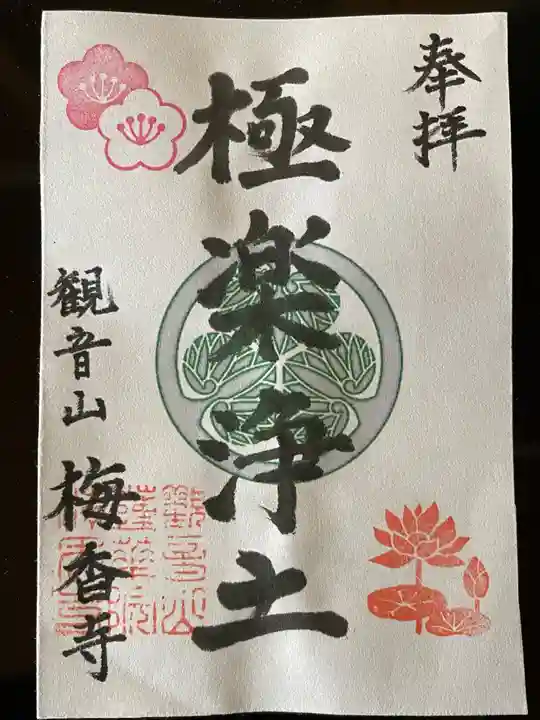 奉拝
極楽浄土
観音山 梅香寺